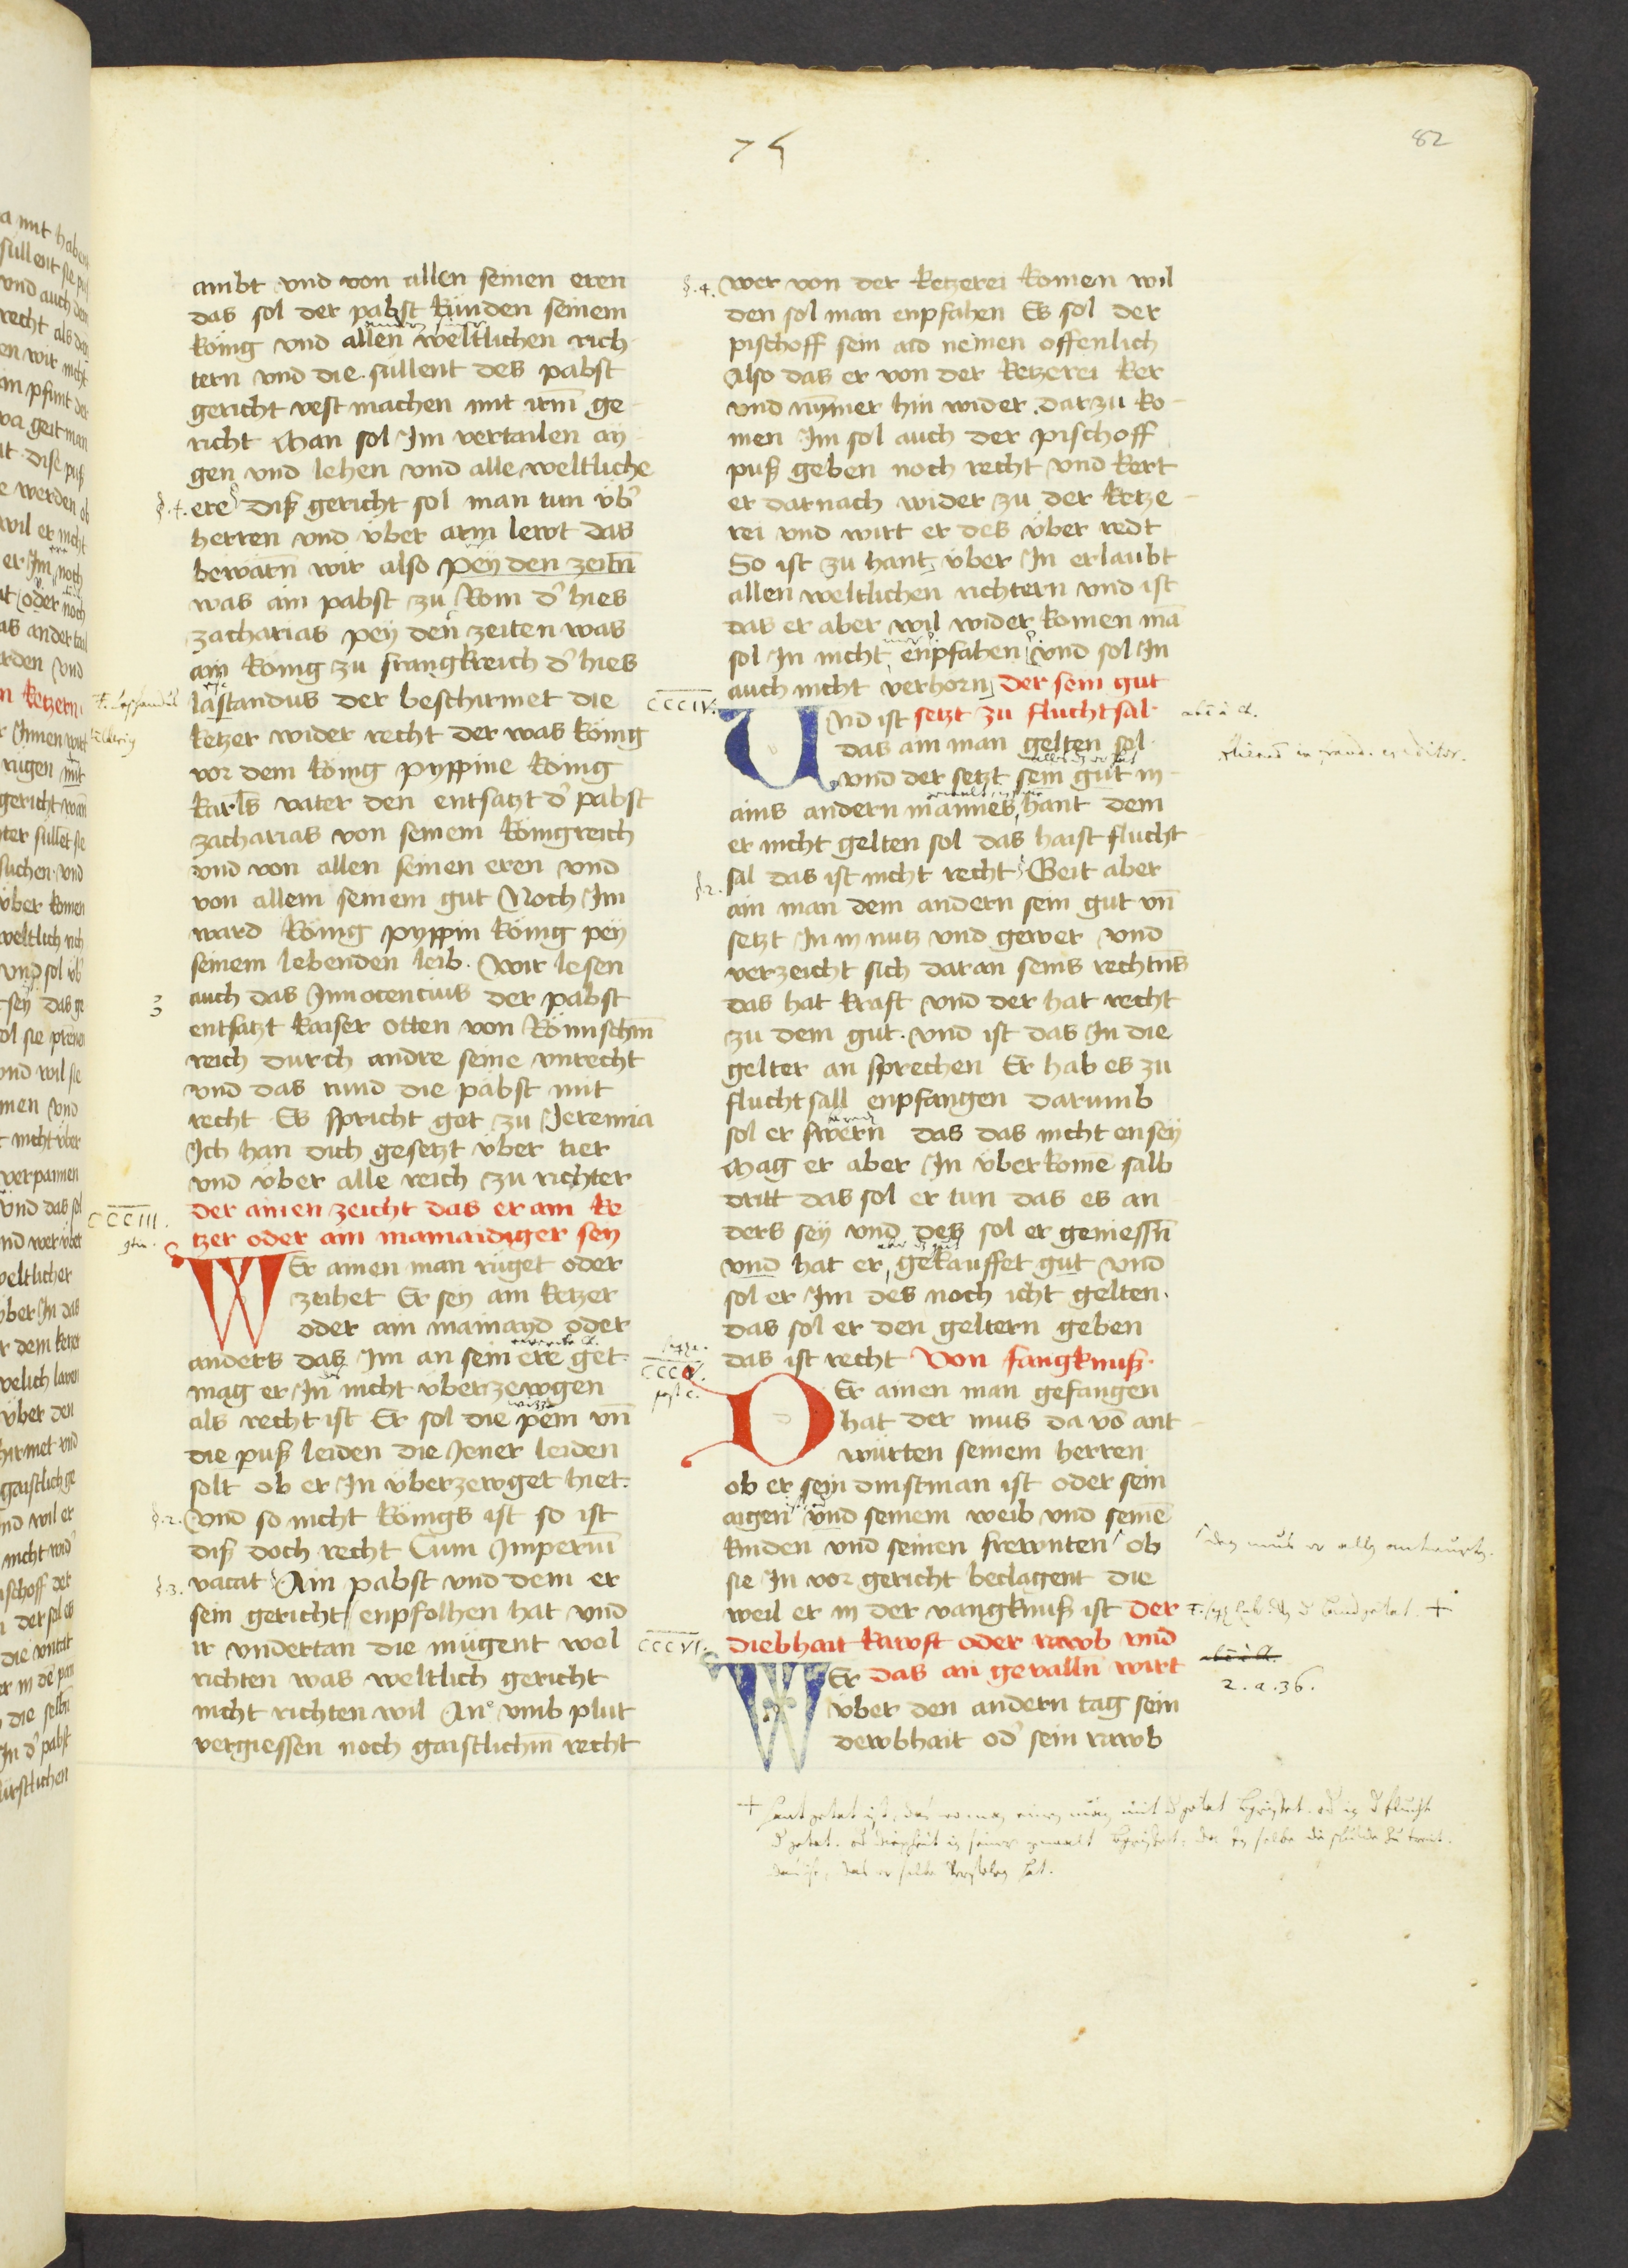 75
82
ambt vnd von allen seinen eren
das sol der pabst künden seinem
könig vnd allen weltlichen rich
tern vnd die süllent des pabst
gericht vest machen mit irm̄ ge
richt Man sol Im vertailen ay
gen vnd lehen vnd alle weltliche
§.4. ere diß gericht sol man tun vb̓
herren vnd über arm lewt das
bewarn̄ wir also pey den zeitn̄
was ain pabst zu Rom d̓ hies
zacharias pey den zeiten was
ain könig zu frangkreich d̓ hies
lastandus der beschirmet die
ketzer wider recht der was könig
vor dem könig pyppine könig
karls vater den entsatzt d̓ pabst
zacharias von seinem königreich
vnd von allen seinen eren vnd
von allem seinem gut Noch Im
ward König pyppin könig pey
seinem lebenden leib. Wir lesen
3 auch das Innocencius der pabst
entsatzt kaiser otten von Römischm̄
reich durch andre seine vnrecht
vnd das tund die päbst mit
recht Es spricht got zu Jeremia
Ich han dich gesetzt über tier
vnd über alle reich zu richter
CCCIII. der ainen zeicht das er ain ke
tzer oder ain mainaidiger sey
WEr ainen man rüget oder
zeihet Er sey ain ketzer
oder ain mainayd oder
anders das Im an sein ere get.
mag er In nicht überzewgen
als recht ist Er sol die pein vn̄
die puß leiden die Jener leiden
solt ob er In überzewget hiet.
§.2. Vnd so nicht königs ist so ist
diß doch recht Cum Imperiū
§.3. vacat Ain pabst vnd dem er
sein gericht enpfolhen hat vnd
ir vndertan die mügent wol
richten was weltlich gericht
nicht richten wil An vmb plut
vergiessen noch gaistlichm̄ recht
§.4. wer von der ketzerei komen wil
den sol man enpfahen Es sol der
pischoff sein aid nemen offenlich
Also das er von der ketzerei ker
vnd nym̄er hin wider darzu ko
men Im sol auch der pischoff
puß geben noch recht vnd kert
er darnach wider zu der ketze
rei vnd wirt er des über redt
So ist zu hant über In erlaubt
allen weltlichen richtern vnd ist
das er aber wil wider komen mā
sol In nicht enpfahen vnd sol In
auch nicht verhorn der sein gut
CCCIV. VNd ist setzt zu fluchtsal
das ain man gelten sol
vnd der setzt sein gut in
ains andern mannes hant dem
er nicht gelten sol das haist flucht
§.2. sal das ist nicht recht Geit aber
ain man dem andern sein gut vn̄
setzt In in nutz vnd gewer vnd
verzeicht sich daran seins rechtn̄s
das hat kraft vnd der hat recht
zu dem gut. vnd ist das In die
gelter an sprechen Er hab es zu
fluchtsall enpfangen darumb
sol er swern das das nicht ensey
Mag er aber In überkomē salb
dritt das sol er tun das es an
ders sey vnd des sol er geniessn̄
vnd hat er gekauffet gut vnd
sol er Im des noch icht gelten.
das sol er den geltern geben
CCCV. das ist recht Von fangknuß.
DEr ainen man gefangen
hat der mus da vō ant
würten seinem herren
ob er sein dinstman ist oder sein
aigen vnd seinem weib vnd seinē
kinden vnd seinen frewnten ob
sie In vor gericht beclagent die
weil er in der vangknuß ist der
CCCVI. diebhait kawft oder rawb vnd
WEr das an gevalln̄ wirt
über den andern tag sein
dewbhait od̓ sein rawb
2. a. 36.